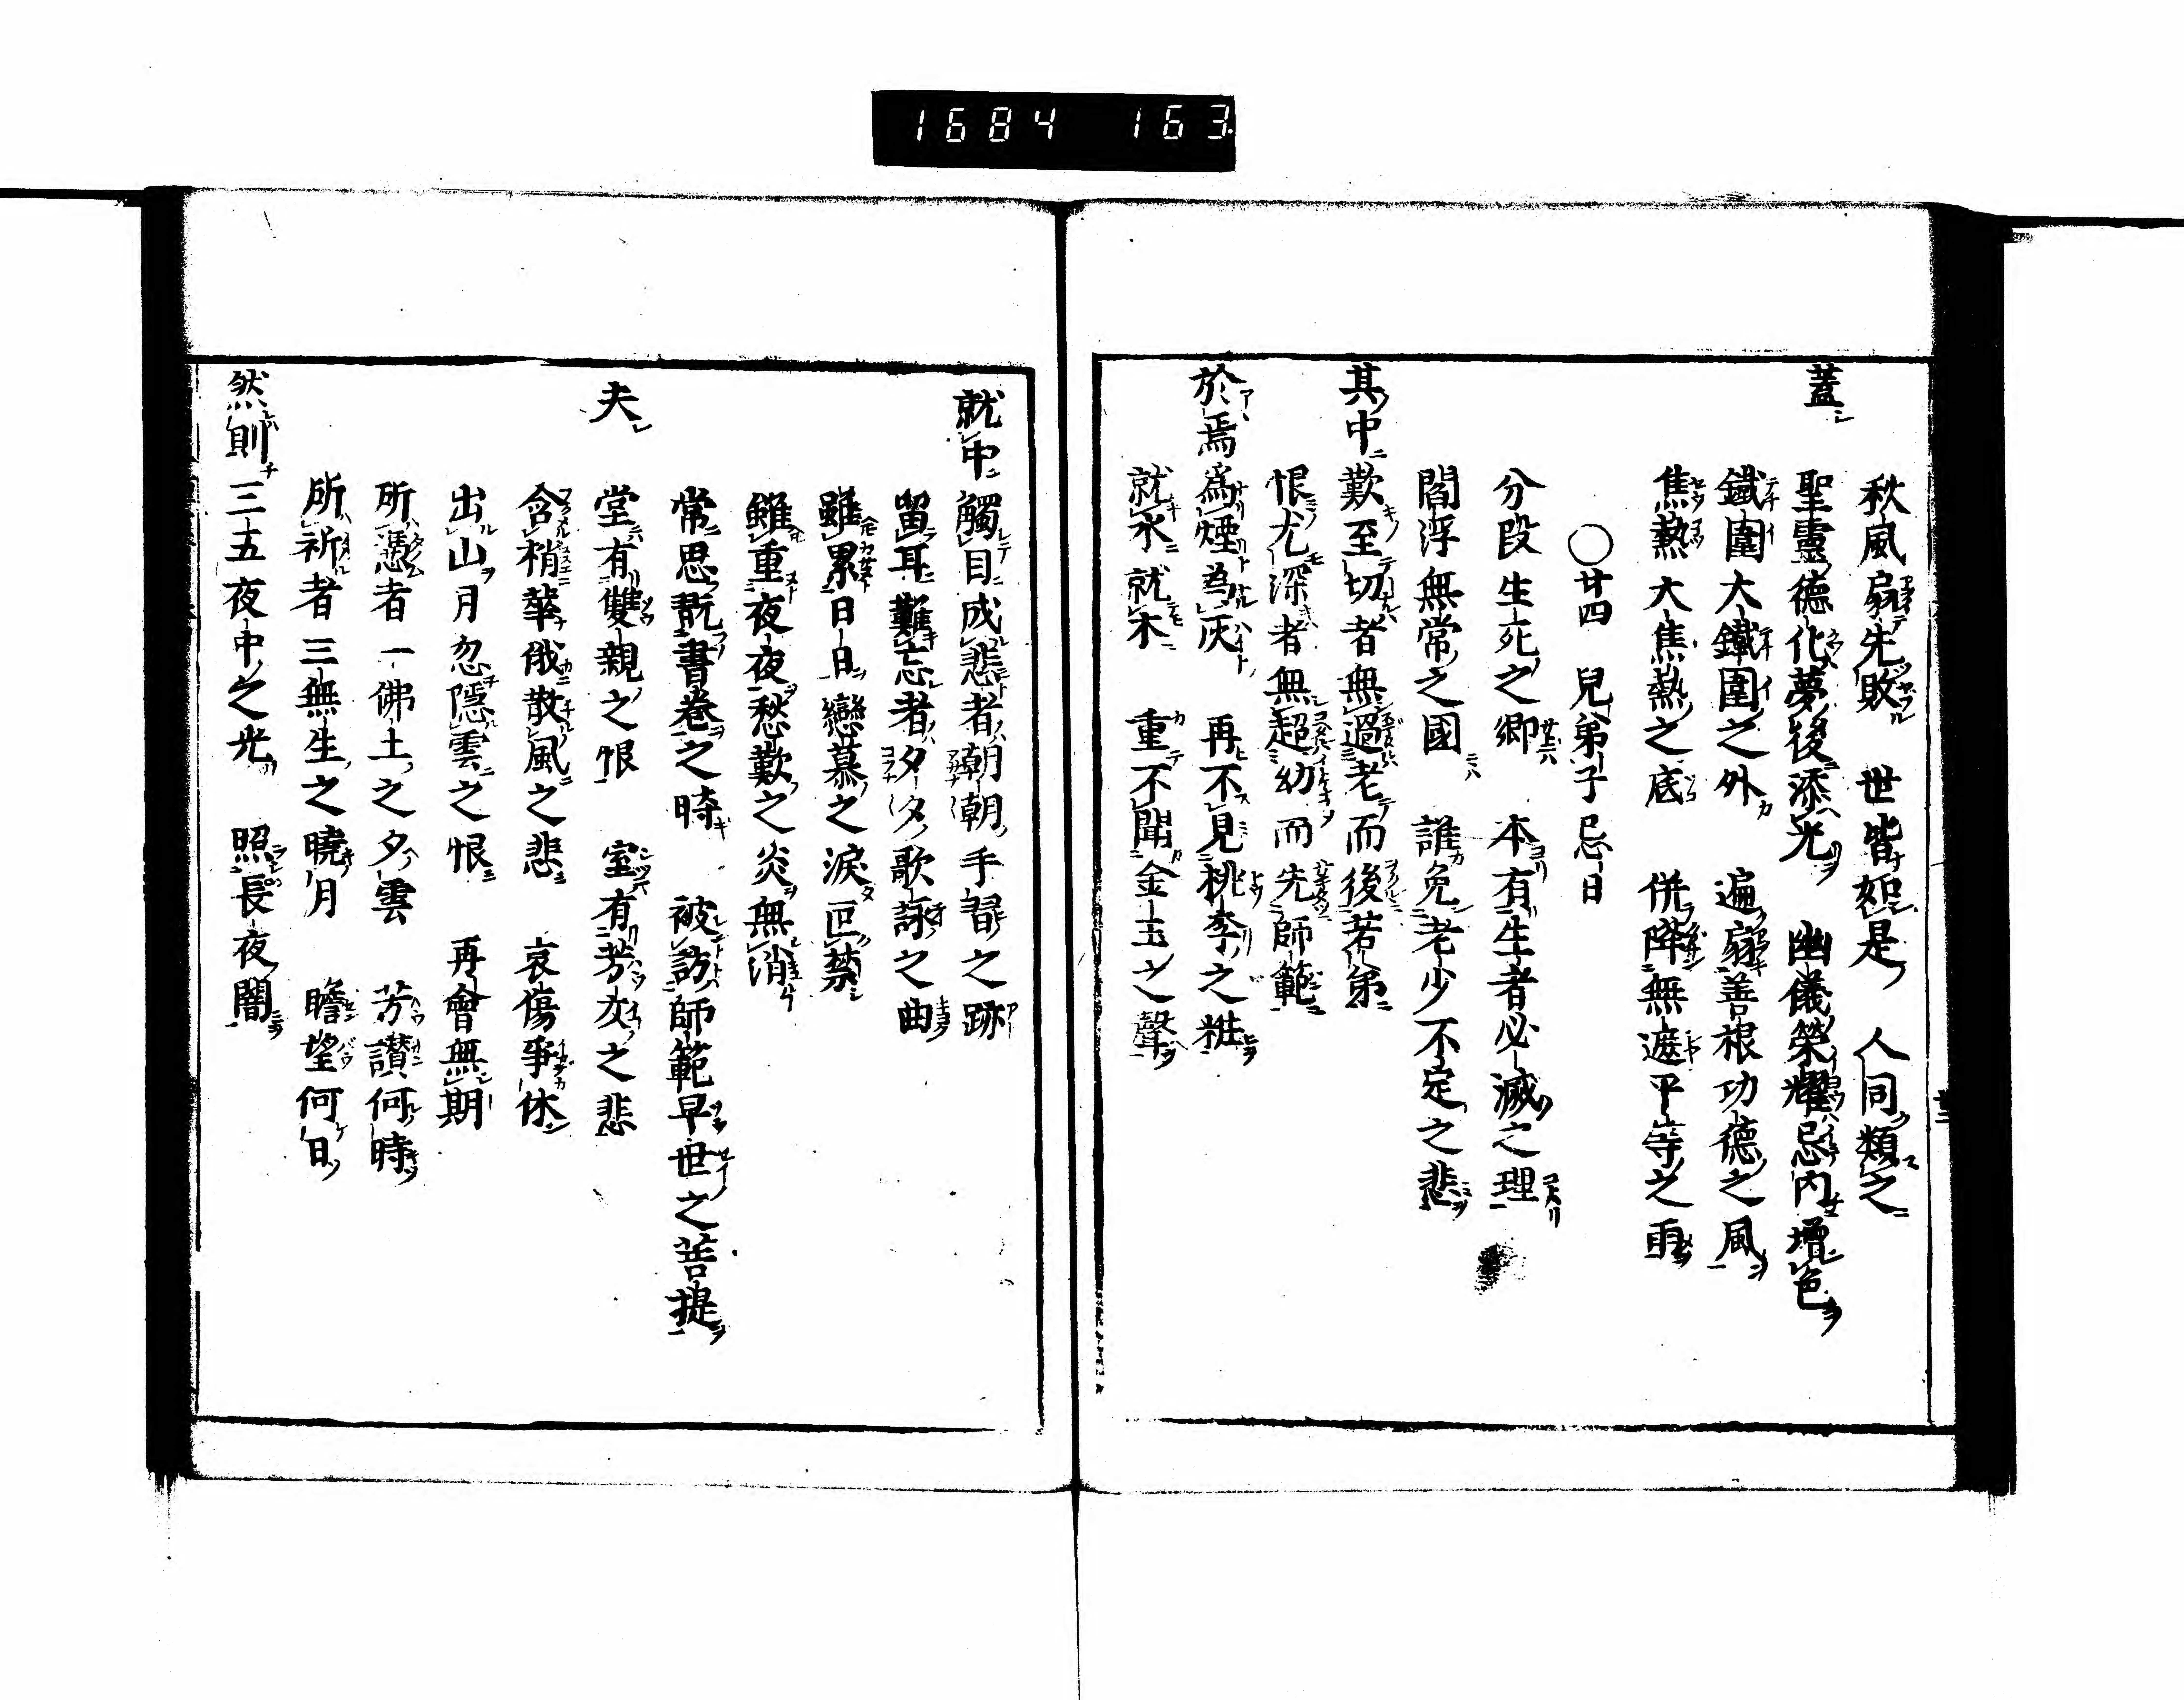 1684 163
秋風扇先敗 世皆恕是 人同類之
蓋 聖靈德化夢後添光 幽儀榮耀忌内增色
鐵圍大鐵圍之外 遍扇善根功德之風
焦熱大焦熱之底 併降無遮平等之雨
○廿四 兒弟子忌日
分段生死之鄉 本有生者必滅之理
閻浮無常之國 誰免老少不定之悲
其中歎至切者無過老而後若弟
恨尤深者無超幼而先師範
於焉爲煙為灰 再不見桃李之粧
就水就木 重不聞金玉之聲
就中觸目成悲者朝朝手習之跡
留耳難忘者夕夕歌詠之曲
雖累日日戀慕之淚叵禁
雖重夜夜愁歎之炎無消
常思翫書卷之時 被訪師範早世之菩提
夫 堂有雙親之恨 室有芳友之悲
含梢華俄散風之悲 哀傷爭休
出山月忽隱雲之恨 再會無期
所憑者一佛土之夕雲 芳讃何時
所祈者三無生之曉月 瞻望何日
然則三五夜中之光 照長夜闇